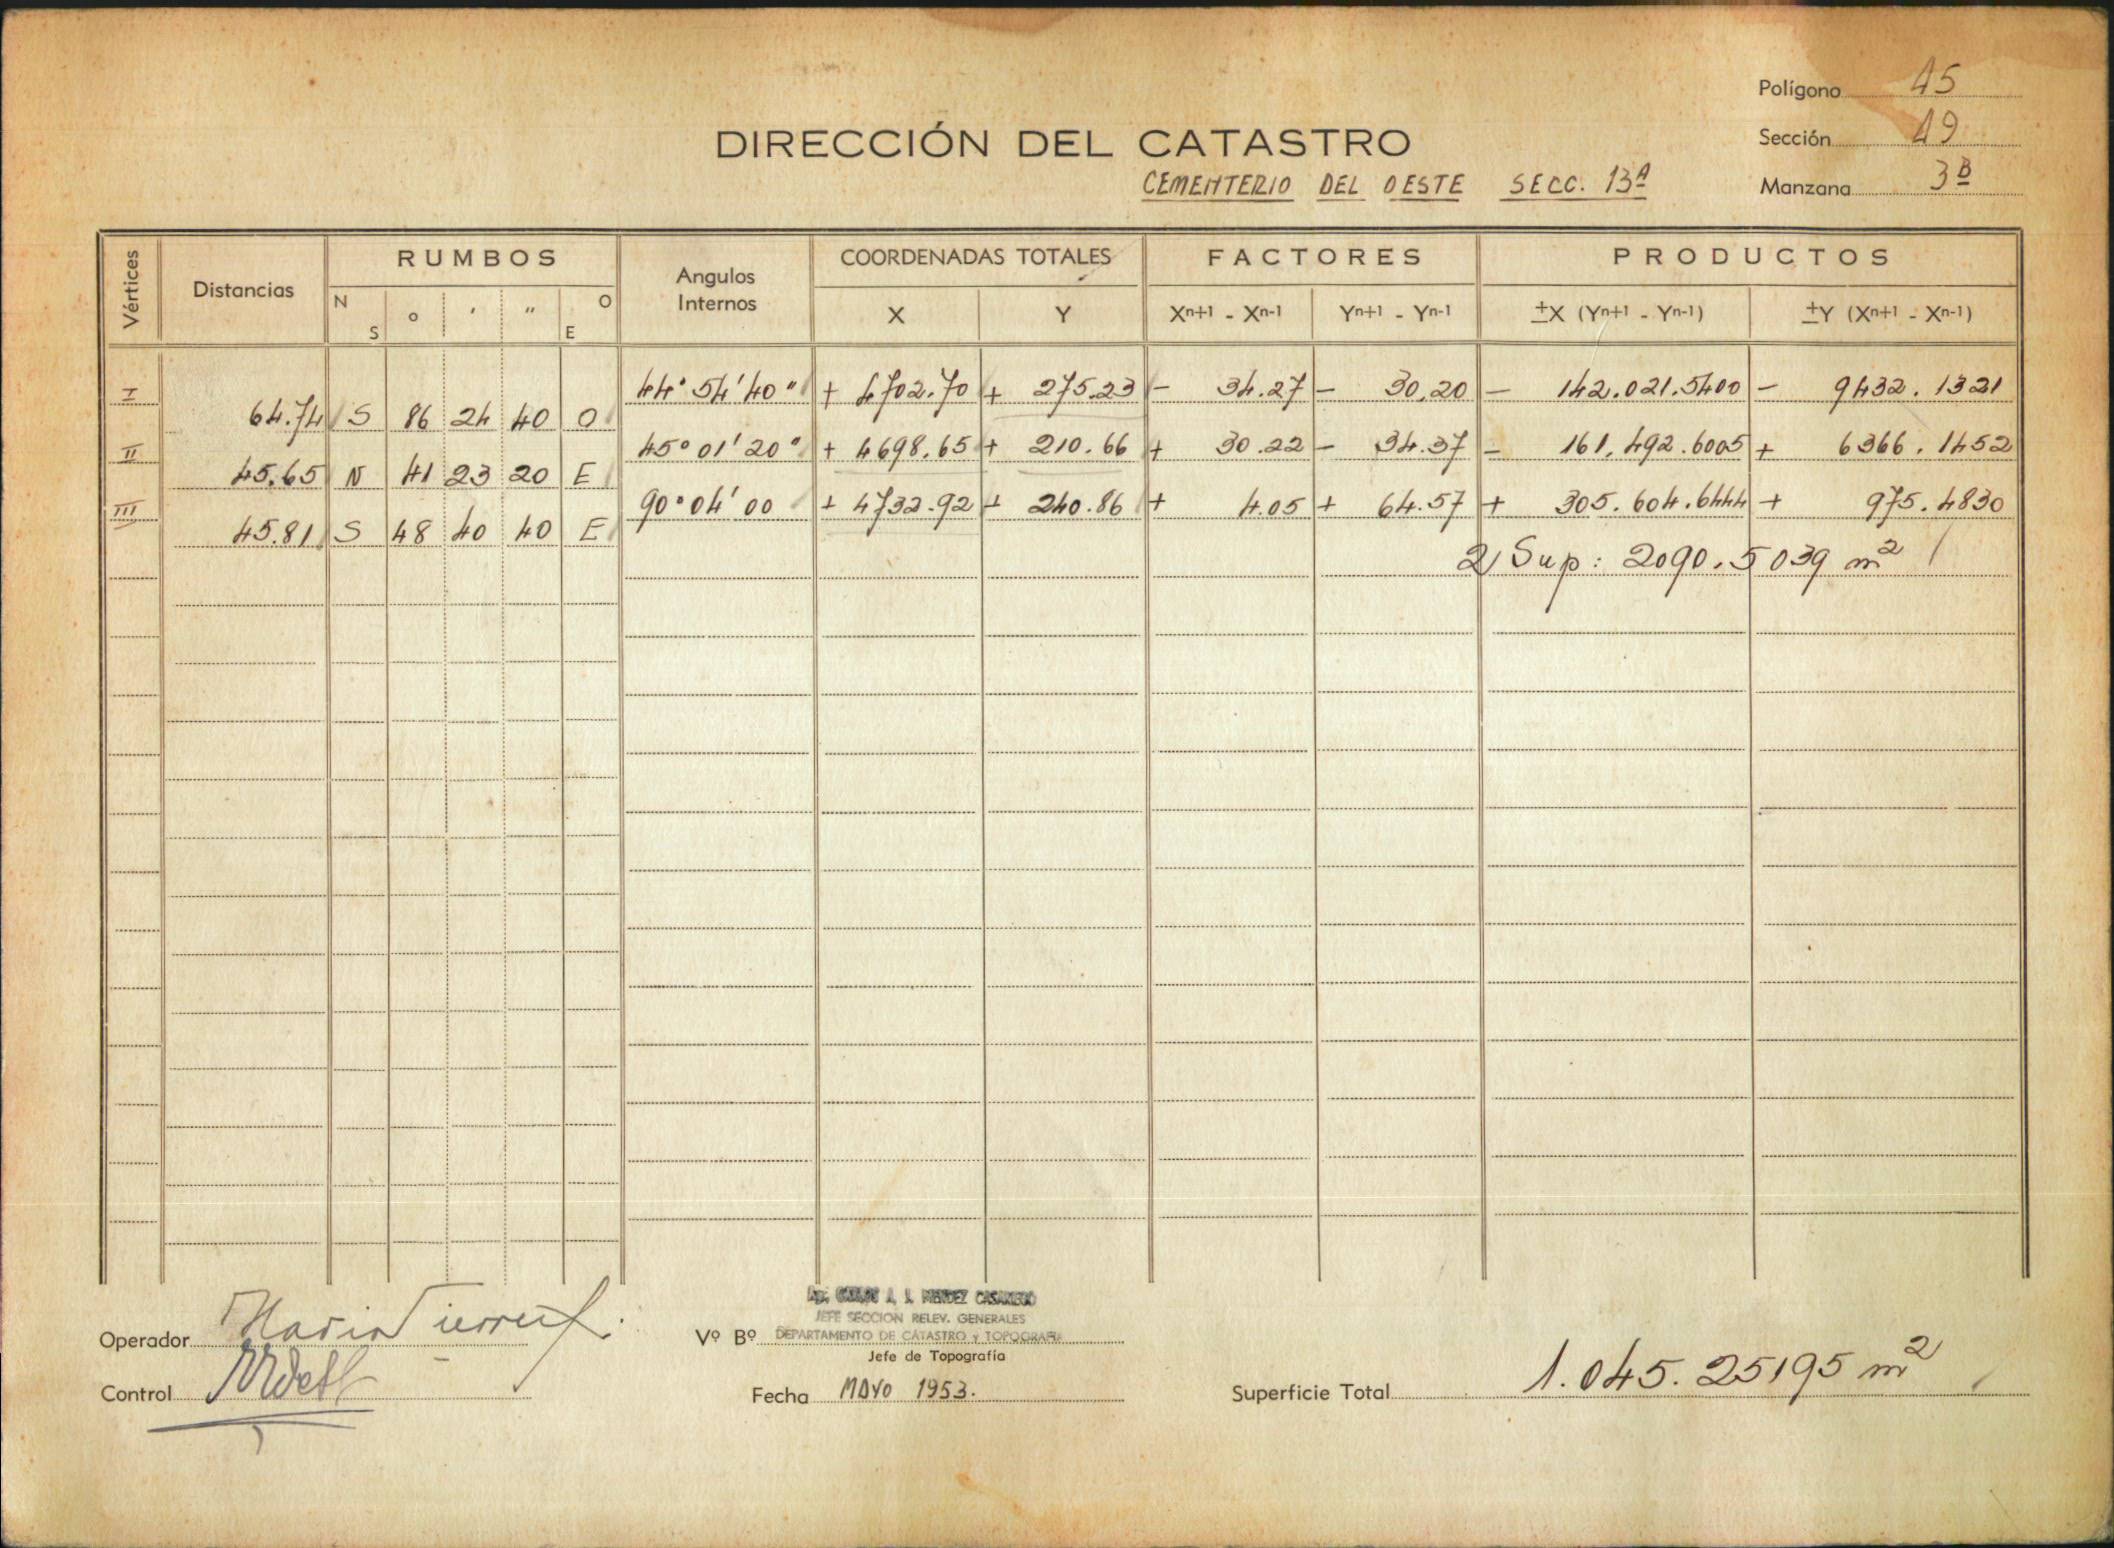 Polígono 45
DIRECCIÓN DEL CATASTRO
Sección 49
CEMENTERIO DEL OESTE SECC. 13ª
Manzana 3B
Vértices Distancias RUMBOS Angulos Internos COORDENADAS TOTALES FACTORES PRODUCTOS
N S o ' " O E X Y Xn+1 - Xn-1 Yn+1 - Yn-1 ±X (Yn+1 - Yn-1) ±Y (Xn+1 - Xn-1)
I 44° 54' 40" + 4702.70 + 275.23 - 34.27 - 30.20 - 142.021.5400 - 9432.1321
64.74 S 86 24 40 O
II 45° 01' 20" + 4698.65 + 210.66 + 30.22 - 34.37 - 161.492.6005 + 6366.1452
45.65 N 41 23 20 E
III 90° 04' 00 + 4732.92 + 240.86 + 4.05 + 64.57 + 305.604.6444 + 975.4830
45.81 S 48 40 40 E
2 Sup: 2090.5039 m²
A. J. MENDEZ CASARIEGO
JEFE SECCION RELEV. GENERALES
Operador Vº Bº DEPARTAMENTO DE CATASTRO y TOPOGRAFIA
Jefe de Topografía
Control Fecha MAYO 1953. Superficie Total 1.045.25195 m²